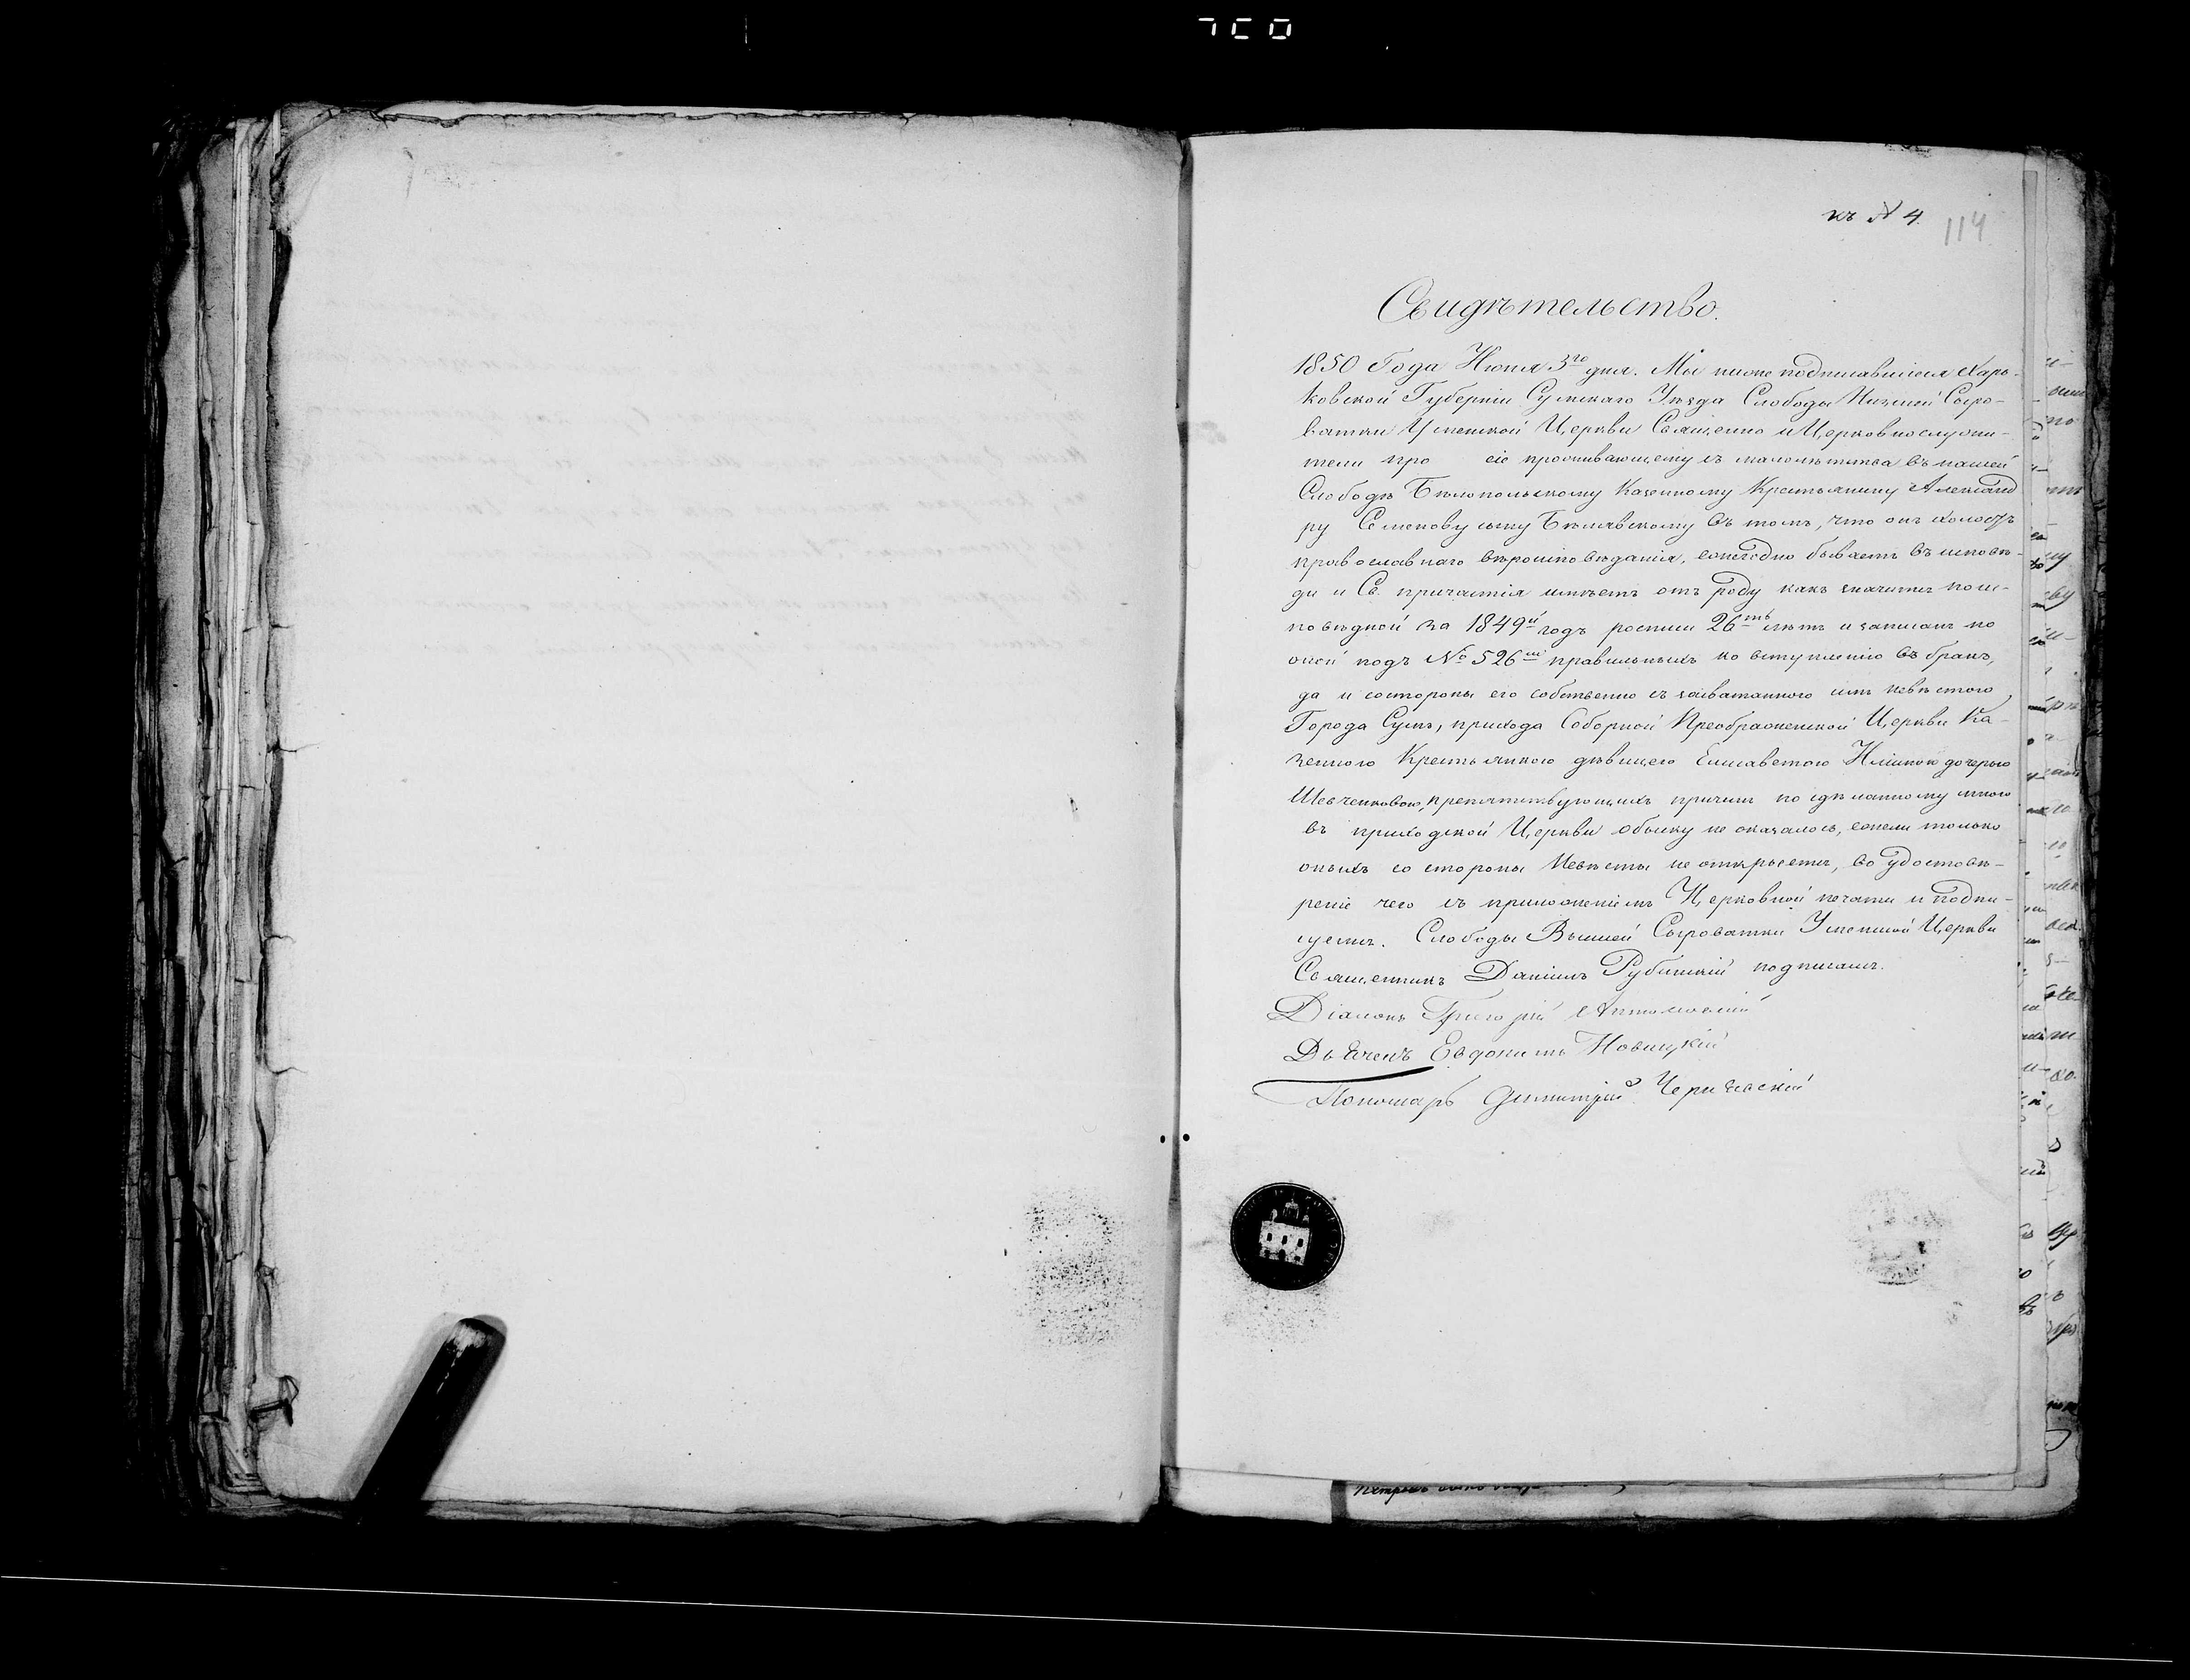 къ № 4.
114
Свидѣтельство.
1850 Года Июня 3го дня. Мы ниже подписавшіеся Харь-
ковской Губерніи Сумскаго Уѣзда Слободы Низшей Сыро-
ватки Успенской Церкви Священно и Церковнослужи-
тели сіе проживающему съ малолѣтства въ нашей
Слободѣ Бѣлопольскому Казенному Крестьянину Александ
ру Семенову сыну Бѣлявскому въ томъ, что онъ холостъ
православнаго вѣроисповѣданія, ежегодно бываетъ въ исповѣ-
ди и Св. причастія имѣетъ отъ роду какъ значится по ис-
повѣдной за 1849й годъ росписи 26ть лѣтъ и записанъ по
оной подъ № 526мъ правильныхъ ко вступленію въ бракъ,
да и состороны его собственно съ засватанною имъ невѣстою
Города Сумъ, прихода Соборной Преображенской Церкви Ка-
зенною Крестьянкою дѣвицею Елисаветою дочерью
Шевченковою, препятствующихъ причинъ по сдѣланному мною
въ приходской Церкви обыску не оказалось, ежели только
оныхъ со стороны Невѣсты не откроется, во удостовѣ-
реніе чего съ приложеніемъ Церковной печати и подпи-
суемся. Слободы Вышшей Сыроватки Успенской Церкви
Священникъ Даніилъ Рубинскій подписался.
Діаконъ Григорій
Дьячекъ Евдокимъ Новицкій
Пономарь Димитрій Чернявскій